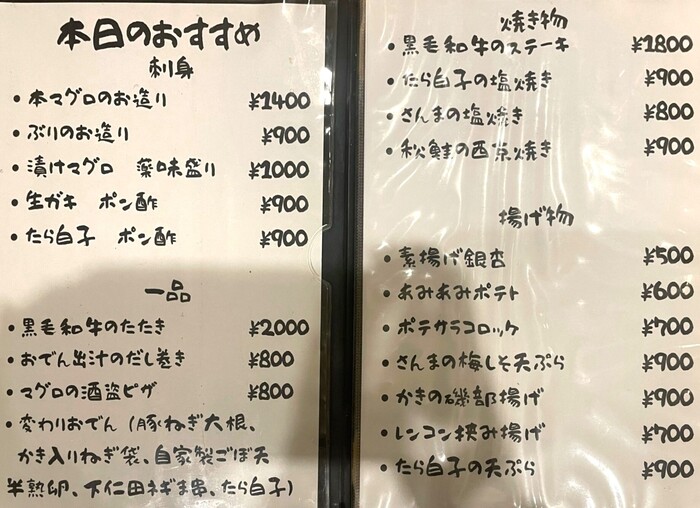 本日のおすすめ
刺身
・本マグロのお造り ¥1400
・ぶりのお造り ¥900
・漬けマグロ 薬味盛り ¥1000
・生ガキ ポン酢 ¥900
・たら白子 ポン酢 ¥900
一品
・黒毛和牛のたたき ¥2000
・おでん出汁のだし巻き ¥800
・マグロの酒盗ピザ ¥800
・変わりおでん (豚ねぎ大根、
かき入りねぎ袋、自家製ごぼ天
半熟卵、下仁田ネギま串、たら白子)
焼き物
・黒毛和牛のステーキ ¥1800
・たら白子の塩焼き ¥900
・さんまの塩焼き ¥800
・秋鮭の西京焼き ¥900
揚げ物
・素揚げ銀杏 ¥500
・あみあみポテト ¥600
・ポテサラコロッケ ¥700
・さんまの梅しそ天ぷら ¥900
・かきの磯部揚げ ¥900
・レンコン挟み揚げ ¥700
・たら白子の天ぷら ¥900